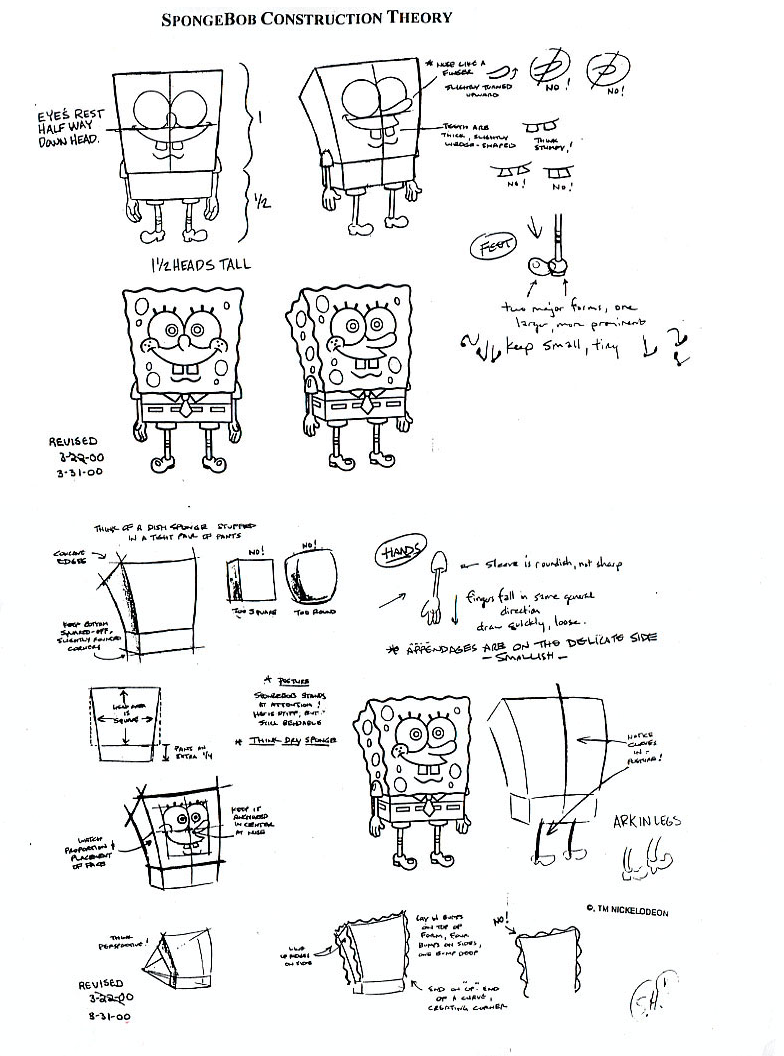 SPONGEBOB CONSTRUCTION THEORY
EYE'S REST
HALF WAY
DOWN HEAD.
1
1/2
1 1/2 HEADS TALL
* NOSE LIKE A
FINGER
SLIGHTLY TURNED
UPWARD
NO!
NO!
TEETH ARE
THICK, SLIGHTLY
WEDGE-SHAPED
THINK
STUMPY!
NO!
NO!
FEET
two major forms, one
larger, more prominent
keep small, tiny
REVISED
3-22-00
3-31-00
THINK OF A DISH SPONGE STUFFED
IN A TIGHT PAIR OF PANTS
CONCAVE
EDGES
NO!
NO!
TOO SQUARE
TOO ROUND
KEEP BOTTOM
SQUARED-OFF,
SLIGHTLY ROUNDED
CORNERS
HANDS
sleeve is roundish, not sharp
fingers fall in same general
direction
draw quickly, loose.
* APPENDAGES ARE ON THE DELICATE SIDE
- SMALLISH -
HEAD AREA
IS
SQUARE
PANTS AN
EXTRA 1/4
* POSTURE
SPONGEBOB STANDS
AT ATTENTION!
HE IS STIFF, BUT
STILL BENDABLE
* THINK DRY SPONGE
NOTICE
CURVES
IN
POSTURE!
ARK IN LEGS
WATCH
PROPORTION &
PLACEMENT
OF FACE
KEEP IT
ANCHORED
IN CENTER
AT NOSE
©, TM NICKELODEON
THINK
PERSPECTIVE!
LINE
UP RIDGES
ON SIDE
LAY IN BUMPS
ON TOP OF
FORM, FOUR
BUMPS ON SIDES,
ONE BUMP DEEP
END ON "UP" END
OF A CURVE,
CREATING CORNER
NO!
REVISED
3-22-00
3-31-00
S.H.